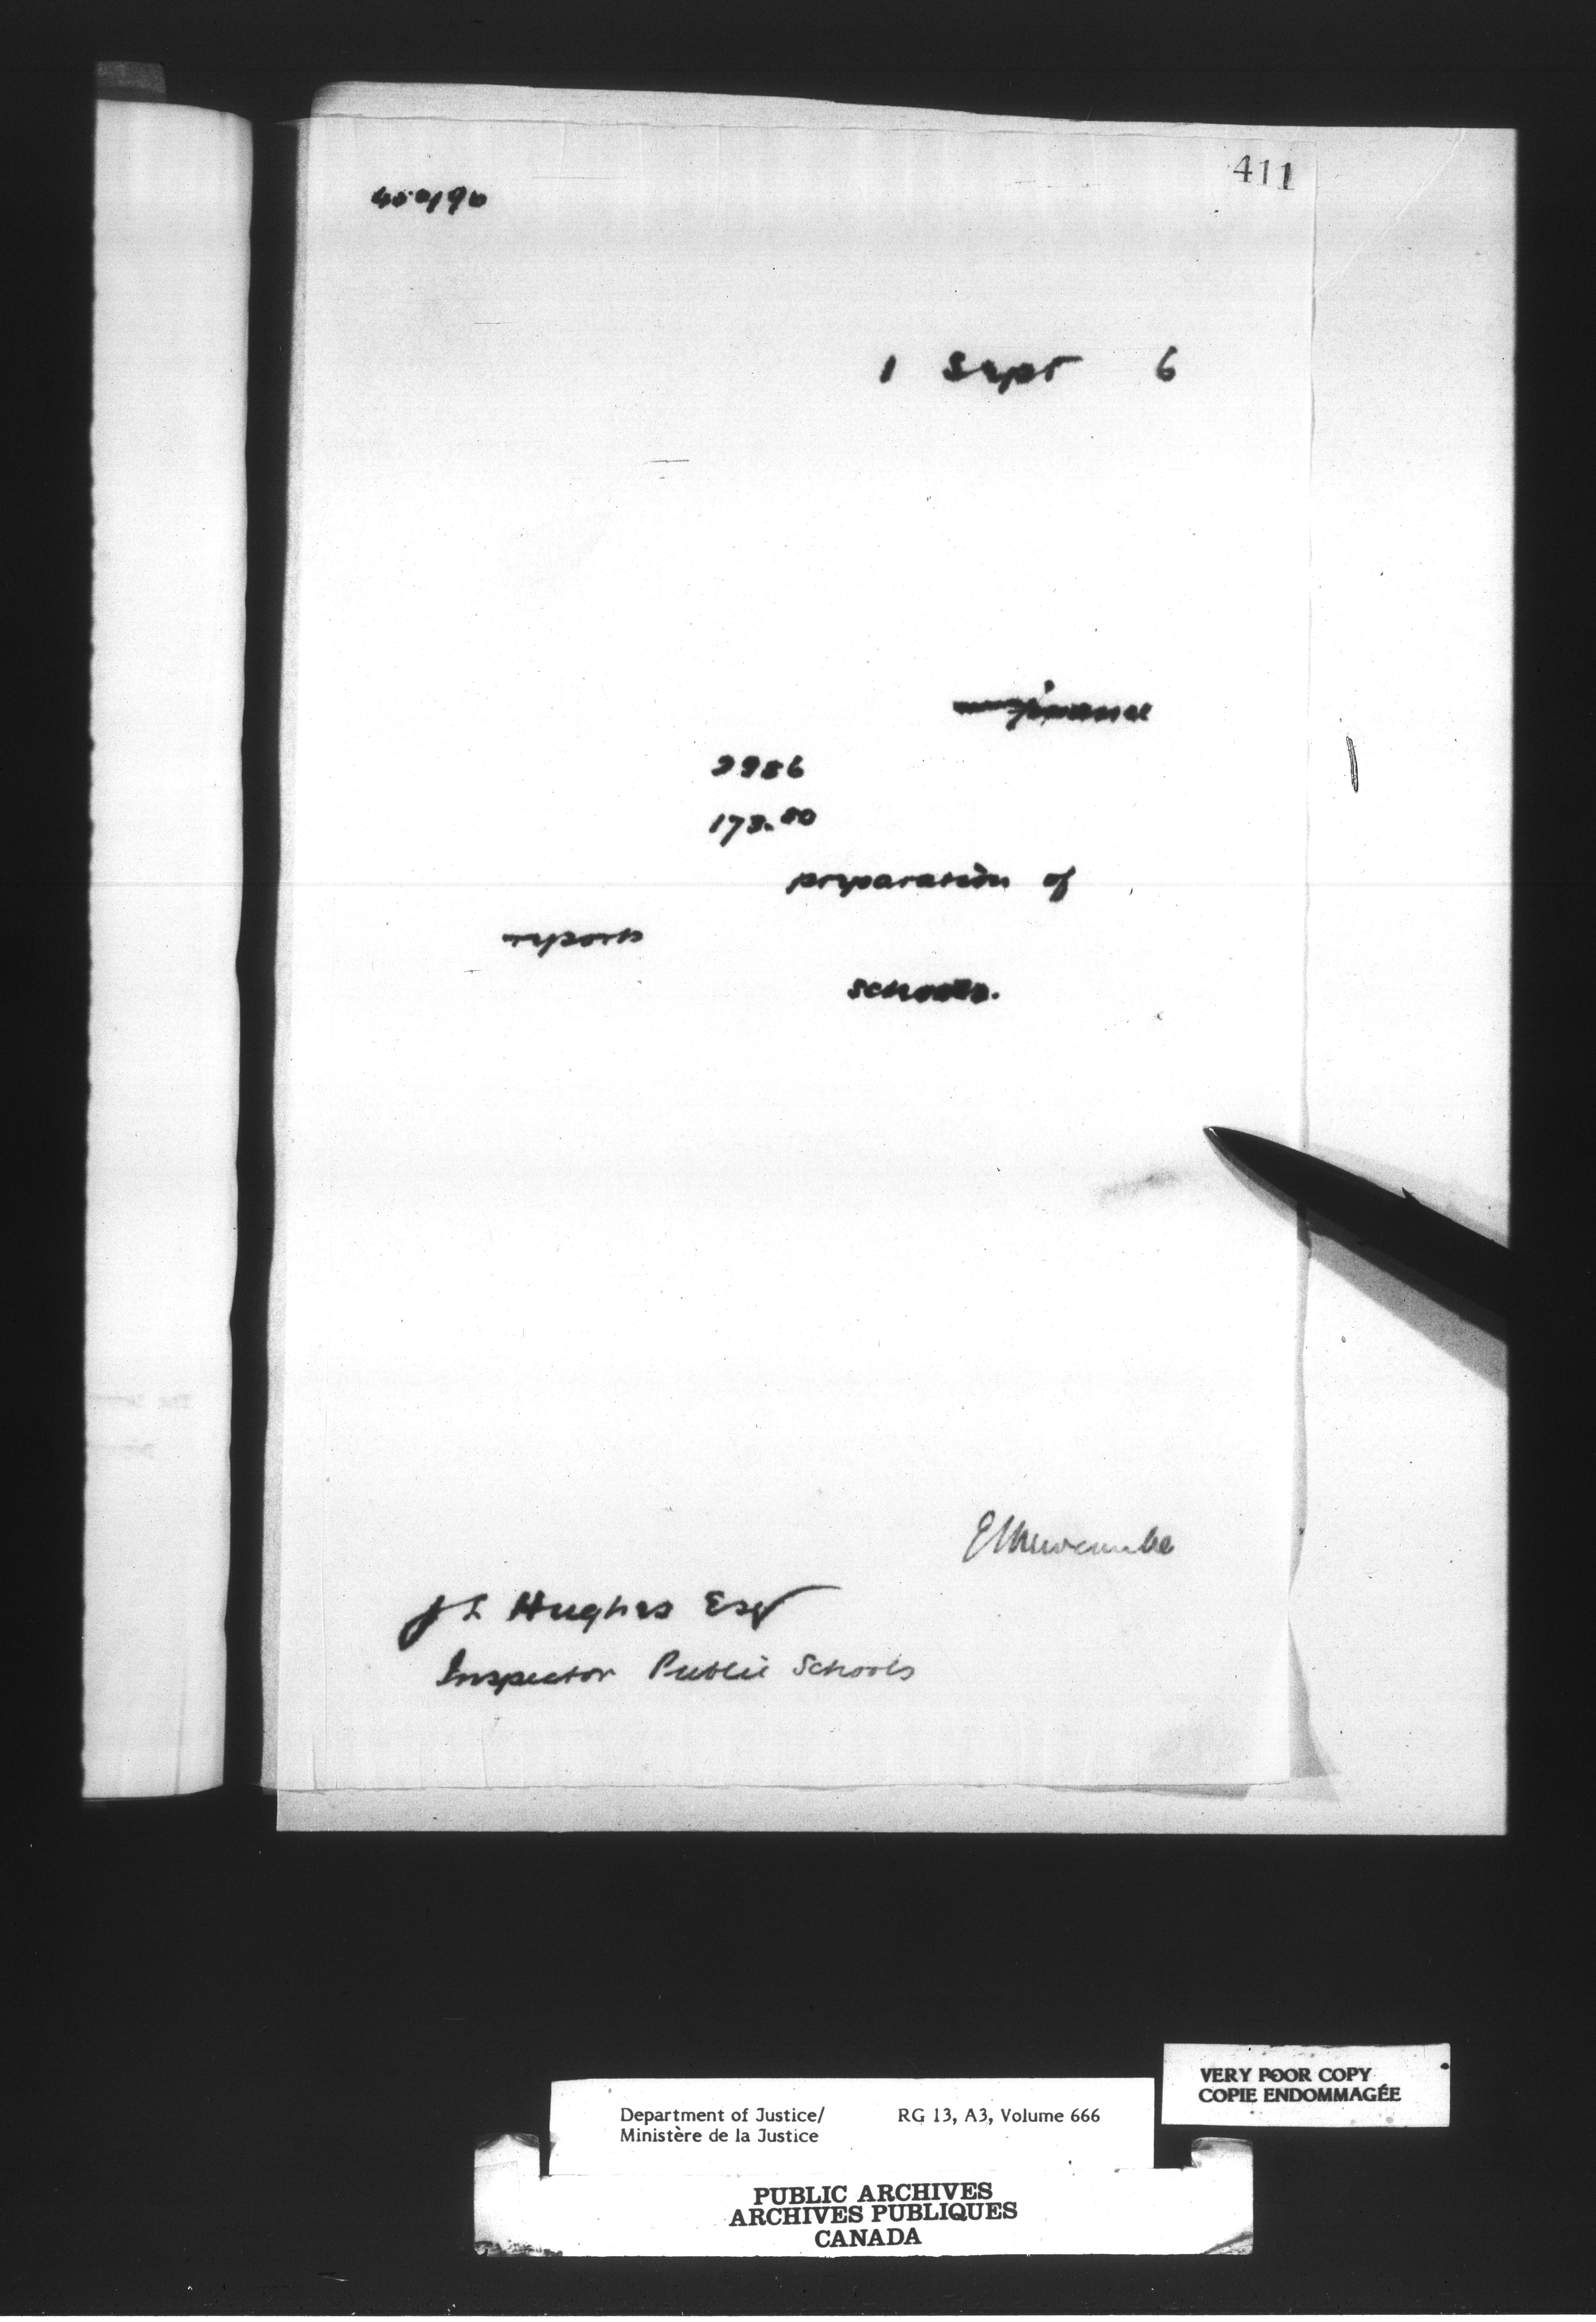 411
1 Sept 6
2986
173.80
preparation of
reports
schools.
E L Newcombe
J L Hughes Esqr
Inspector Public Schools
VERY POOR COPY
COPIE ENDOMMAGÉE
Department of Justice/ RG 13, A3, Volume 666
Ministère de la Justice
PUBLIC ARCHIVES
ARCHIVES PUBLIQUES
CANADA